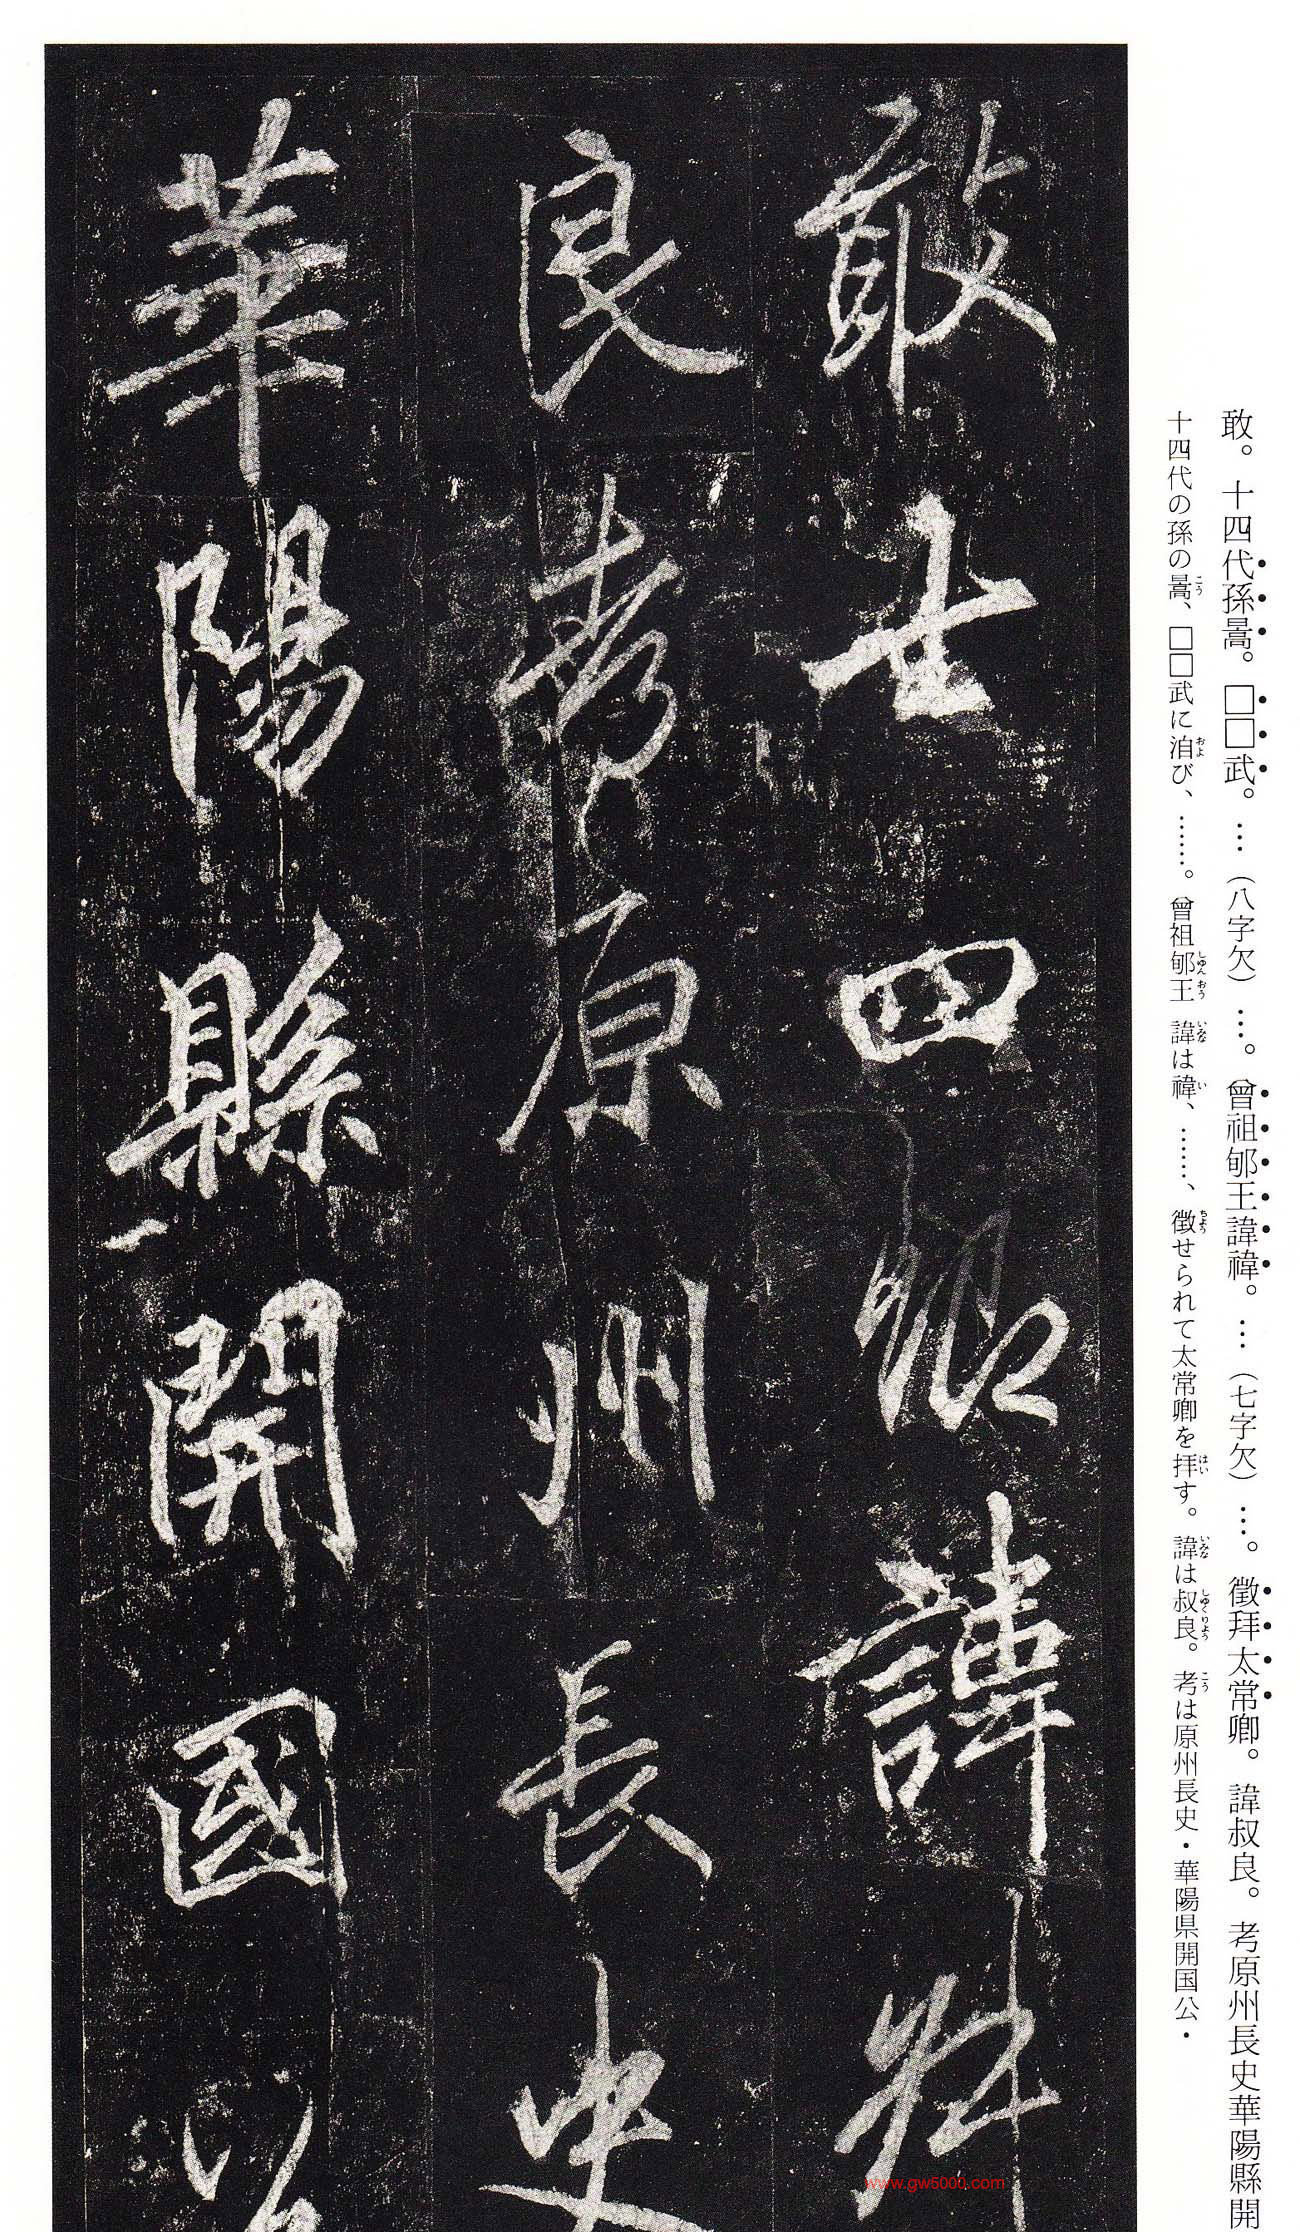 敢。十四代孫暠。□□武。…(八字欠)…。曾祖郇王諱禕。…(七字欠)…。徵拜太常卿。諱叔良。考原州長史華陽縣開
十四代の孫の暠、□□武に洎び、……。曾祖郇王諱は禕、……、徴せられて太常卿を拝す。諱は叔良。考は原州長史・華陽県開国公・
敢十四卿諱叔
良考原州長史
華陽縣開國公
www.gw5000.com